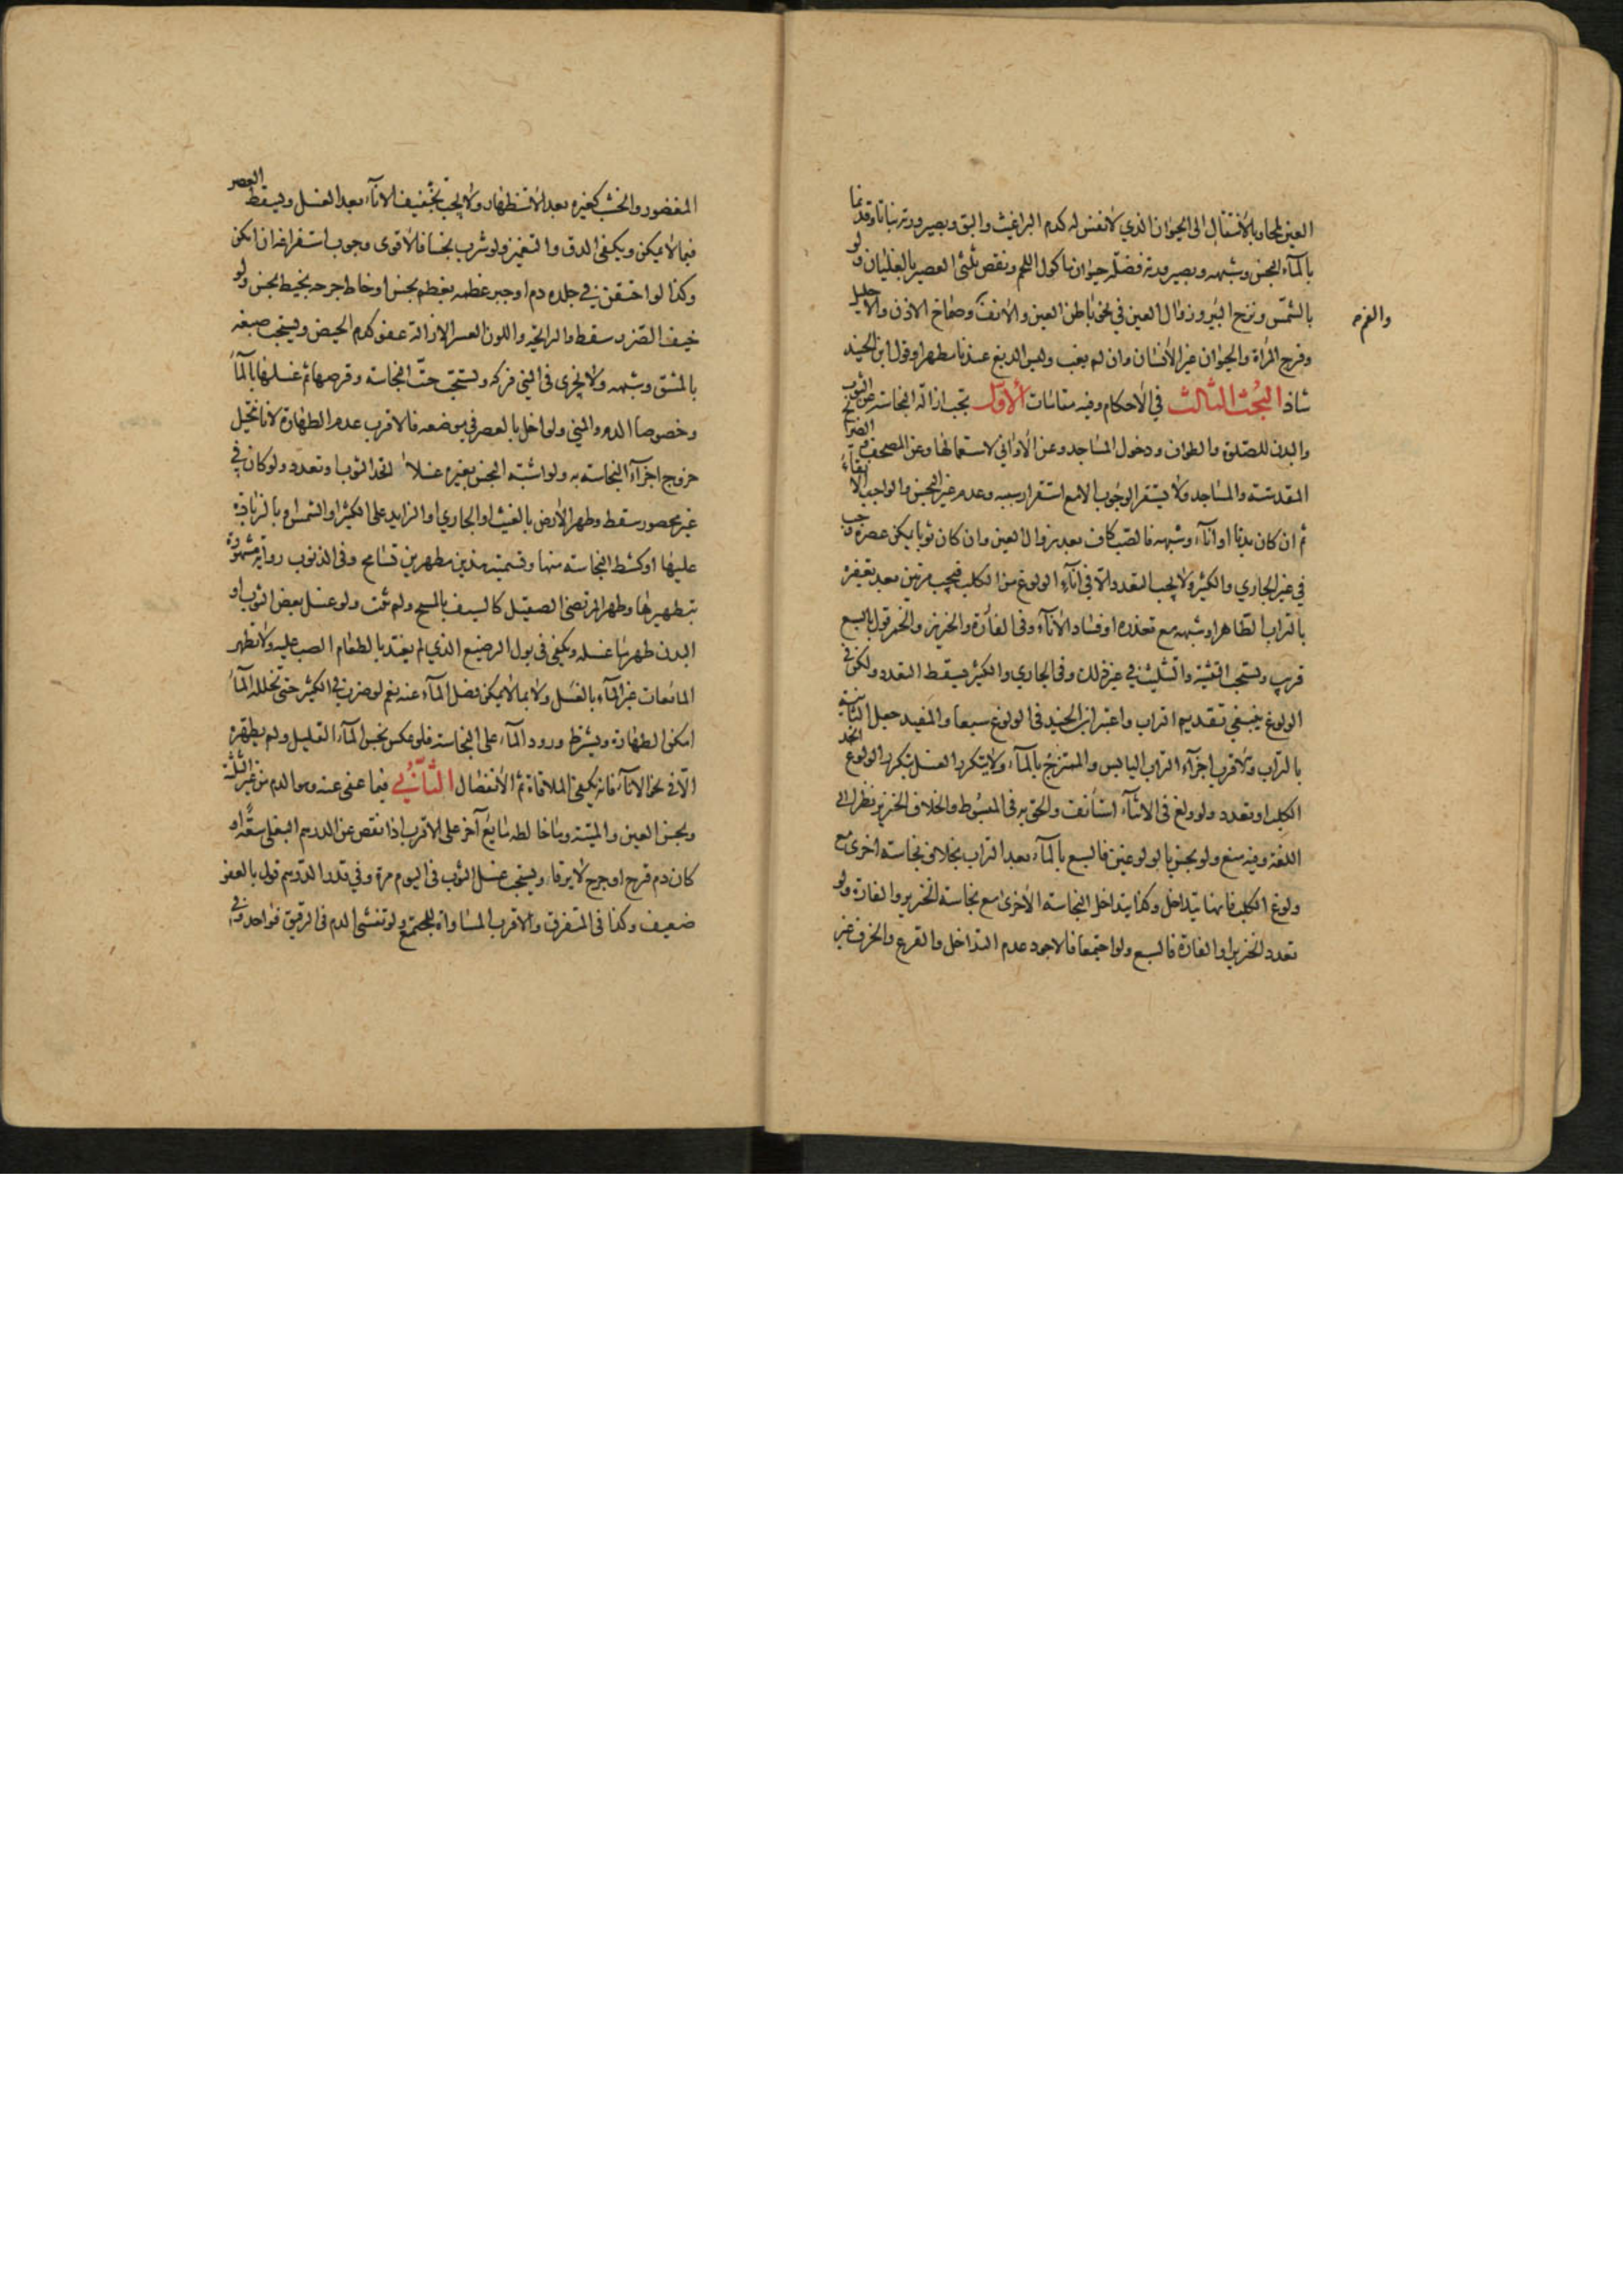 العين لمحاوبالأنتقال الى الحيوان الذي لا نفس له كدم البراغيث والبق وبصيرورته نباتا وقد نما
بالماء النجس وشبهه وبصيرورته فضلة حيوان ماكول اللحم ونقص ثلثي العصير بالغليان ولو
بالشمس ونزح البئر وزوال العين في نحو باطن العين والأنف وصماخ الاذن والاحليل
والفم
وفرج المرأة والحيوان غير الأنسان وان لم يغب وليس الدبغ عندنا مطهرا وقول ابن الجنيد
شاذ البحث الثالث في الأحكام وفيه مقامات الأول تجب ازالة النجاسة عن الثوب
والبدن للصلوة والطواف ودخول المساجد وعن الأواني لاستعمالها وعن المصحف والضرائح
المقدسة والمساجد ولا يستقر الوجوب الا مع استقرار سببه وعدم غير النجس والواجب الانقاء
ثم ان كان بدنا او اناء وشبهه فالصب كاف بعد زوال العين وان كان ثوبا يمكن عصره وجب
في غير الجاري والكثير ولا يجب التعدد الا في اناء الولوغ من الكلب فيجب مرتين بعد تعفيره
بالتراب الطاهر او شبهه مع تعذره او فساد الاناء وفي الفأرة والخنزير والخمر قول بالسبع
قريب ويستحب التثنية والتثليث في غير ذلك وفي الجاري والكثير يسقط التعدد ولكن في
الولوغ ينبغي تقديم التراب واعتبر ابن الجنيد في الولوغ سبعا والمفيد جعل الثانية
بالتراب والاقرب اجزاء التراب اليابس والممتزج بالماء ولا يتكرر الغسل بتكرر الولوغ اتحد
الكلب او تعدد ولو ولغ في الاثناء استأنف والحق به في المبسوط والخلاف الخنزير نظرا الى
اللغة وفيه منع ولو نجس بالولوغين فالسبع بالماء بعد التراب بخلاف نجاسة اخرى مع
ولوغ الكلب فانها تتداخل وكذا يتداخل النجاسة الأخرى مع نجاسة الخنزير والفارة ولو
تعدد الخنزير او الفارة فالسبع ولو اجتمعا فالاجود عدم التداخل والقرع والخزف غير
المغضور والخشب كغيره بعد الاستظهار ولا يجب تجفيف الاناء بعد الغسل ويسقط العصر
فيما لا يمكن ويكفي الدق والتغميز ولو شرب نجسا فالأقوى وجوب استفراغه ان امكن
وكذا لو احتقن في جلده دم او جبر عظمه بعظم نجس او خاط جرحه بخيط نجس ولو
خيف الضرر سقط والرائحة واللون العسر الازالة عفو كدم الحيض ويستحب صبغه
بالمشق وشبهه ولا يجزى في المني فركه ويستحب حت النجاسة وقرصها ثم غسلها بالماء
وخصوصا الدم والمني ولو اخل بالعصر في موضعه فالاقرب عدم الطهارة لانا نتخيل
خروج اجزاء النجاسة به ولو اشتبه النجس بغيره غسلا اتحد الثوب او تعدد ولو كان في
غير محصور سقط وطهر الأرض بالغيث او الجاري او الزايد على الكثير او الشمس او بالزيادة
عليها او كشط النجاسة منها وتسمية هذين مطهرين تسامح وفي الذنوب رواية مشهورة
بتطهيرها وطهر المرتضى الصقيل كالسيف بالمسح ولم تثبت ولو غسل بعض الثوب او
البدن طهر ما غسله ويكفي في بول الرضيع الذي لم يغتذ بالطعام الصب عليه ولا تطهر
المائعات غير الماء بالغسل ولا بما لا يمكن فصل الماء عنه نعم لو ضرب في الكثير حتى تخلله الماء
امكن الطهارة ويشترط ورود الماء على النجاسة فلو عكس نجس الماء القليل ولم يطهره
الا في نحو الاناء فانه يكفي الملاقاة ثم الأنفصال الثاني فيما عفي عنه وهو الدم من غير الثلثة
ونجس العين والميتة وما خالطه مايع آخر على الاقرب اذا نقص عن الدرهم البغلي سعة او
كان دم قرح او جرح لا يرقا ويستحب غسل الثوب في اليوم مرة وفي قدر الدرهم قول بالعفو
ضعيف وكذا في المتفرق والاقرب المساواة للمجتمع ولو تفشى الدم في الرقيق فواحد وفي